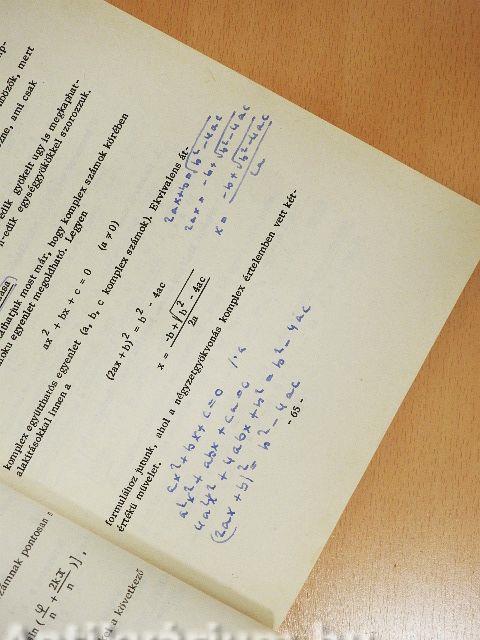 özők, mert
zne, ami csak
edik gyökeit úgy is megkaphat-
n-edik egységgyökökkel szorozzuk.
athatjuk most már, hogy komplex számok körében
fokú egyenlet megoldható. Legyen
ax² + bx + c = 0 (a ≠ 0)
komplex együtthatós egyenlet (a, b, c komplex számok). Ekvivalens át-
alakításokkal innen a
(2ax + b)² = b² - 4ac
x = (-b + √(b² - 4ac)) / 2a
formulához jutunk, ahol a négyzetgyökvonás komplex értelemben vett két-
értékű művelet.
2ax+b = √b² - 4ac
2ax = -b + √b² - 4ac
x = (-b + √b² - 4ac) / 2a
ax² + bx + c = 0 /·a
a²x² + abx + ca = 0
4a²x² + 4abx + b² = b² - 4ac
(2ax + b)² = b² - 4ac
- 65 -
számnak pontosan
n (φ/n + 2kπ/n)],
a következő
Antikvárium.hu